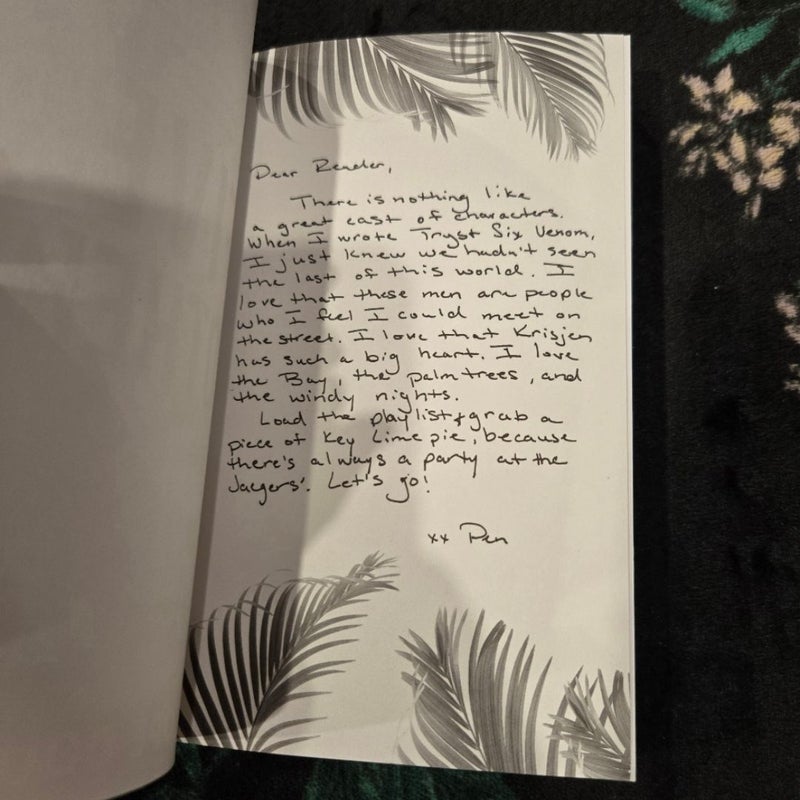 Dear Reader,
There is nothing like
a great cast of characters.
When I wrote Tryst Six Venom,
I just knew we hadn't seen
the last of this world. I
love that these men are people
who I feel I could meet on
the street. I love that Krisjen
has such a big heart. I love
the Bay, the palm trees, and
the windy nights.
Load the playlist & grab a
piece of Key Lime pie, because
there's always a party at the
Jaegers'. Let's go!
xx Pen